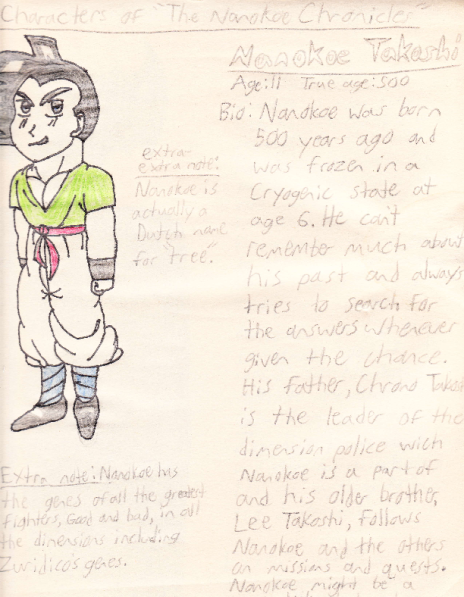 Characters of "The Nanokoe Chronicles"
Nanokoe Takashi
Age: 11 True age: 500
Bio: Nanokoe was born
500 years ago and
was frozen in a
Cryogenic state at
age 6. He can't
remember much about
his past and always
tries to search for
the answers whenever
given the chance.
His father, Chrono Takas
is the leader of the
dimension police wich
Nanokoe is a part of
and his older brother,
Lee Takashi, follows
Nanokoe and the others
on missions and quests.
Nanokoe might be a
extra-
extra note:
Nanokoe is
actually a
Dutch name
for "tree."
Extra note: Nanokoe has
the genes of all the greatest
fighters, Good and bad, in all
the dimensions including
Zuridico's genes.